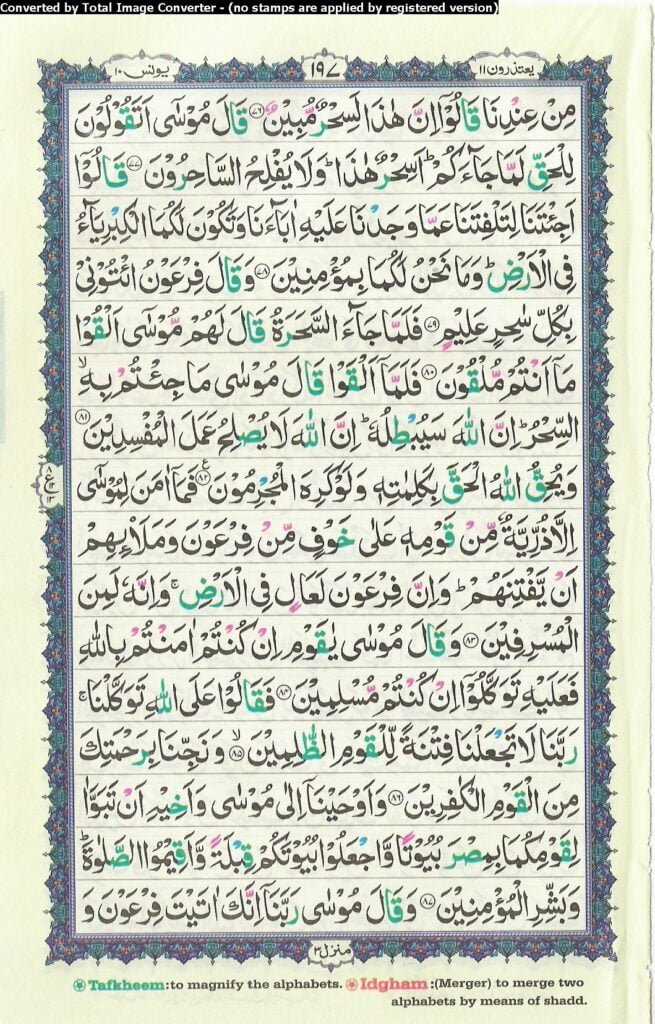 Converted by Total Image Converter - (no stamps are applied by registered version)
یعتذرون ۱۱
۱۹۷
یونس ۱۰
مِنْ عِنْدِنَا قَالُوْۤا اِنَّ هٰذَا لَسِحْرٌ مُّبِیْنٌ ۝۷۶ قَالَ مُوْسٰۤی اَتَقُوْلُوْنَ
لِلْحَقِّ لَمَّا جَآءَكُمْ ؕ اَسِحْرٌ هٰذَا ؕ وَلَا یُفْلِحُ السَّاحِرُوْنَ ۝۷۷ قَالُوْۤا
اَجِئْتَنَا لِتَلْفِتَنَا عَمَّا وَجَدْنَا عَلَیْهِ اٰبَآءَنَا وَتَكُوْنَ لَكُمَا الْكِبْرِیَآءُ
فِی الْاَرْضِ ؕ وَمَا نَحْنُ لَكُمَا بِمُؤْمِنِیْنَ ۝۷۸ وَقَالَ فِرْعَوْنُ ائْتُوْنِیْ
بِكُلِّ سٰحِرٍ عَلِیْمٍ ۝۷۹ فَلَمَّا جَآءَ السَّحَرَةُ قَالَ لَهُمْ مُّوْسٰۤی اَلْقُوْا
مَاۤ اَنْتُمْ مُّلْقُوْنَ ۝۸۰ فَلَمَّاۤ اَلْقَوْا قَالَ مُوْسٰی مَا جِئْتُمْ بِهِ ۙ
السِّحْرُ ؕ اِنَّ اللّٰهَ سَیُبْطِلُهٗ ؕ اِنَّ اللّٰهَ لَا یُصْلِحُ عَمَلَ الْمُفْسِدِیْنَ ۝۸۱
وَیُحِقُّ اللّٰهُ الْحَقَّ بِكَلِمٰتِهٖ وَلَوْ كَرِهَ الْمُجْرِمُوْنَ ۝۸۲ ع فَمَاۤ اٰمَنَ لِمُوْسٰۤی
اِلَّا ذُرِّیَّةٌ مِّنْ قَوْمِهٖ عَلٰی خَوْفٍ مِّنْ فِرْعَوْنَ وَمَلَا۠ئِهِمْ
اَنْ یَّفْتِنَهُمْ ؕ وَاِنَّ فِرْعَوْنَ لَعَالٍ فِی الْاَرْضِ ۚ وَاِنَّهٗ لَمِنَ
الْمُسْرِفِیْنَ ۝۸۳ وَقَالَ مُوْسٰی یٰقَوْمِ اِنْ كُنْتُمْ اٰمَنْتُمْ بِاللّٰهِ
فَعَلَیْهِ تَوَكَّلُوْۤا اِنْ كُنْتُمْ مُّسْلِمِیْنَ ۝۸۴ فَقَالُوْا عَلَی اللّٰهِ تَوَكَّلْنَا ۚ
رَبَّنَا لَا تَجْعَلْنَا فِتْنَةً لِّلْقَوْمِ الظّٰلِمِیْنَ ۝۸۵ ۙ وَنَجِّنَا بِرَحْمَتِكَ
مِنَ الْقَوْمِ الْكٰفِرِیْنَ ۝۸۶ وَاَوْحَیْنَاۤ اِلٰی مُوْسٰی وَاَخِیْهِ اَنْ تَبَوَّاٰ
لِقَوْمِكُمَا بِمِصْرَ بُیُوْتًا وَّاجْعَلُوْا بُیُوْتَكُمْ قِبْلَةً وَّاَقِیْمُوا الصَّلٰوةَ ؕ
وَبَشِّرِ الْمُؤْمِنِیْنَ ۝۸۷ وَقَالَ مُوْسٰی رَبَّنَاۤ اِنَّكَ اٰتَیْتَ فِرْعَوْنَ وَ
منزل ۳
Tafkheem :to magnify the alphabets. Idgham :(Merger) to merge two
alphabets by means of shadd.